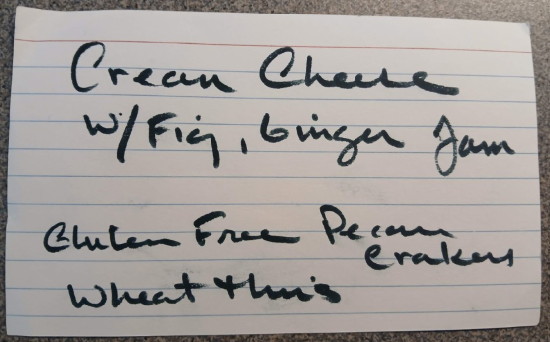 Cream Cheese
w/ Fig, Ginger Jam
Gluten Free Pecan
Crakers
Wheat thins